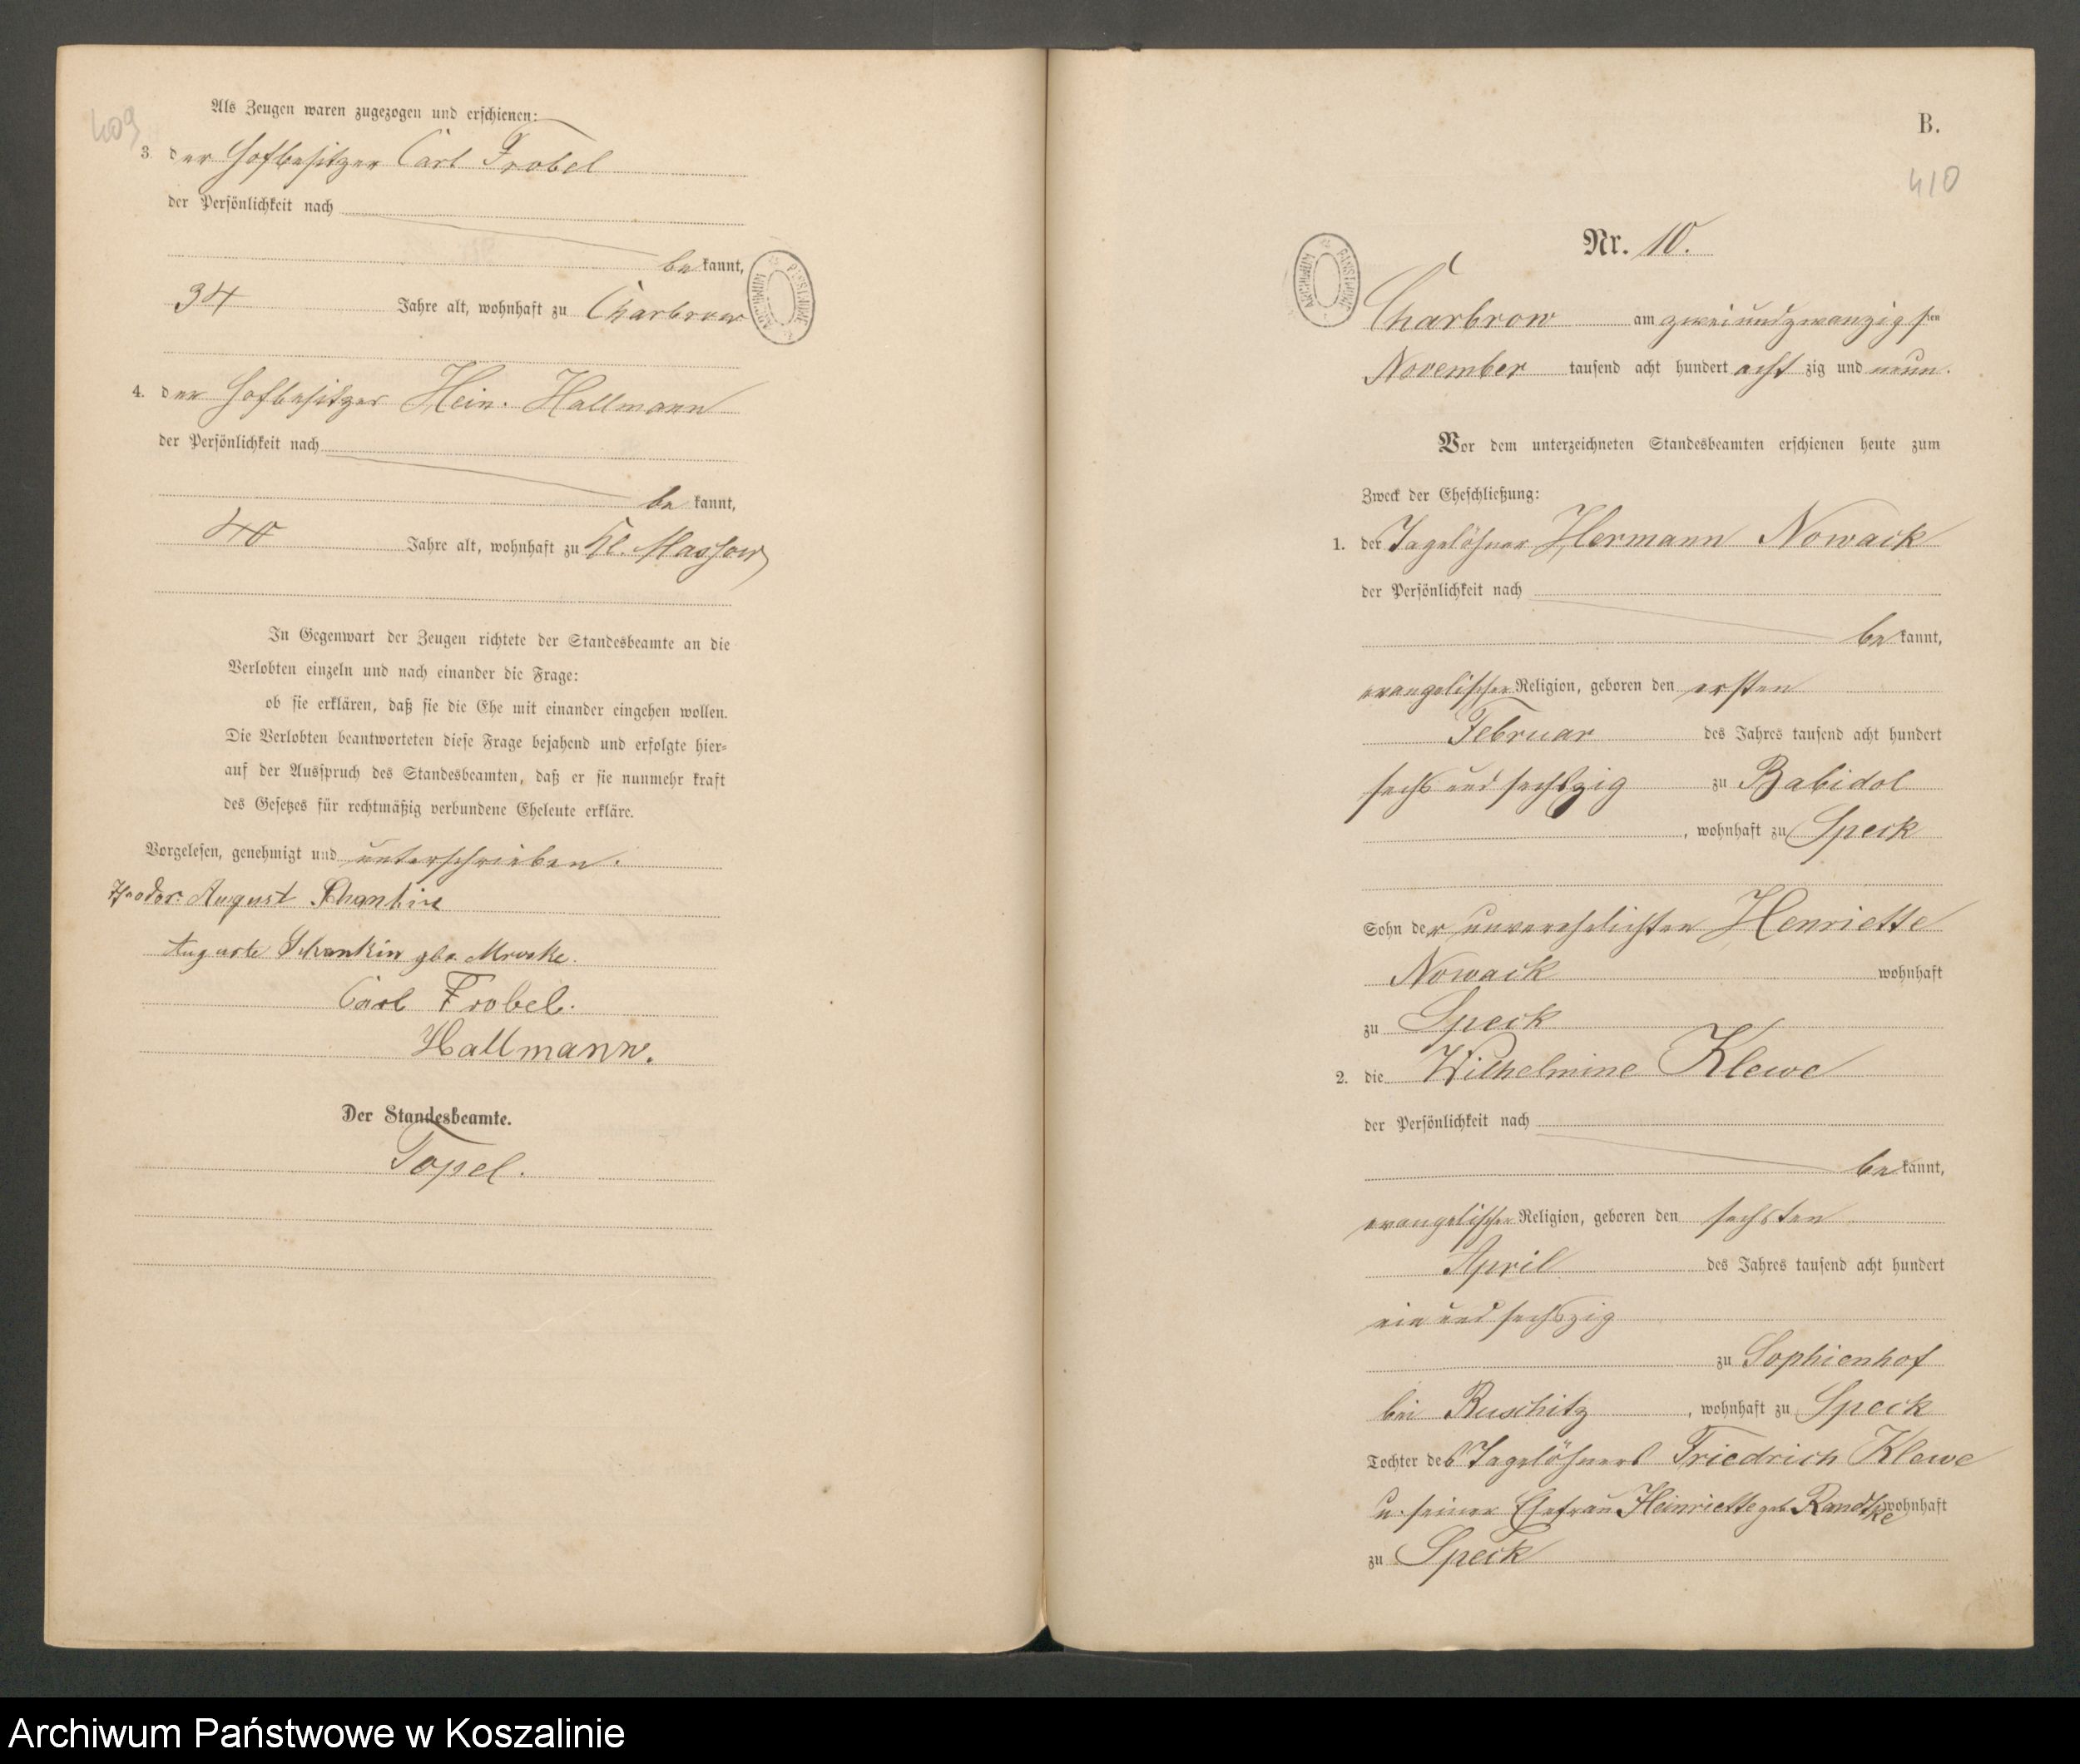 409
Als Zeugen waren zugezogen und erschienen:
3. der Hofbesitzer Carl Frobel
der Persönlichkeit nach
be kannt,
34 Jahre alt, wohnhaft zu Charbrow
4. der Hofbesitzer Hein. Hallmann
der Persönlichkeit nach
be kannt,
40 Jahre alt, wohnhaft zu Kl. Massow
In Gegenwart der Zeugen richtete der Standesbeamte an die
Verlobten einzeln und nach einander die Frage:
ob sie erklären, daß sie die Ehe mit einander eingehen wollen.
Die Verlobten beantworteten diese Frage bejahend und erfolgte hier=
auf der Ausspruch des Standesbeamten, daß er sie nunmehr kraft
des Gesetzes für rechtmäßig verbundene Eheleute erkläre.
Vorgelesen, genehmigt und unterschrieben.
August
Auguste Schankin gbe
Carl Frobel.
Hallmann.
Der Standesbeamte.
Topel.
ARCHIWUM PAŃSTWOWE
B.
410
Nr. 10.
ARCHIWUM PAŃSTWOWE
Charbrow am zweiundzwanzigsten
November tausend acht hundert acht zig und neun.
Vor dem unterzeichneten Standesbeamten erschienen heute zum
Zweck der Eheschließung:
1. der Tagelöhner Hermann Nowack
der Persönlichkeit nach
be kannt,
evangelischer Religion, geboren den ersten
Februar des Jahres tausend acht hundert
sechs und sechszig zu Babidol
, wohnhaft zu Speck
Sohn der unverehelichten Henriette
Nowack wohnhaft
zu Speck
2. die Wilhelmine Klewe
der Persönlichkeit nach
be kannt,
evangelischer Religion, geboren den sechsten
April des Jahres tausend acht hundert
ein und sechszig
zu Sophienhof
bei Ruschitz, wohnhaft zu Speck
Tochter des Tagelöhners Friedrich Klewe
u. seiner Ehefrau Heinriette geb. Randtke wohnhaft
zu Speck
Archiwum Państwowe w Koszalinie